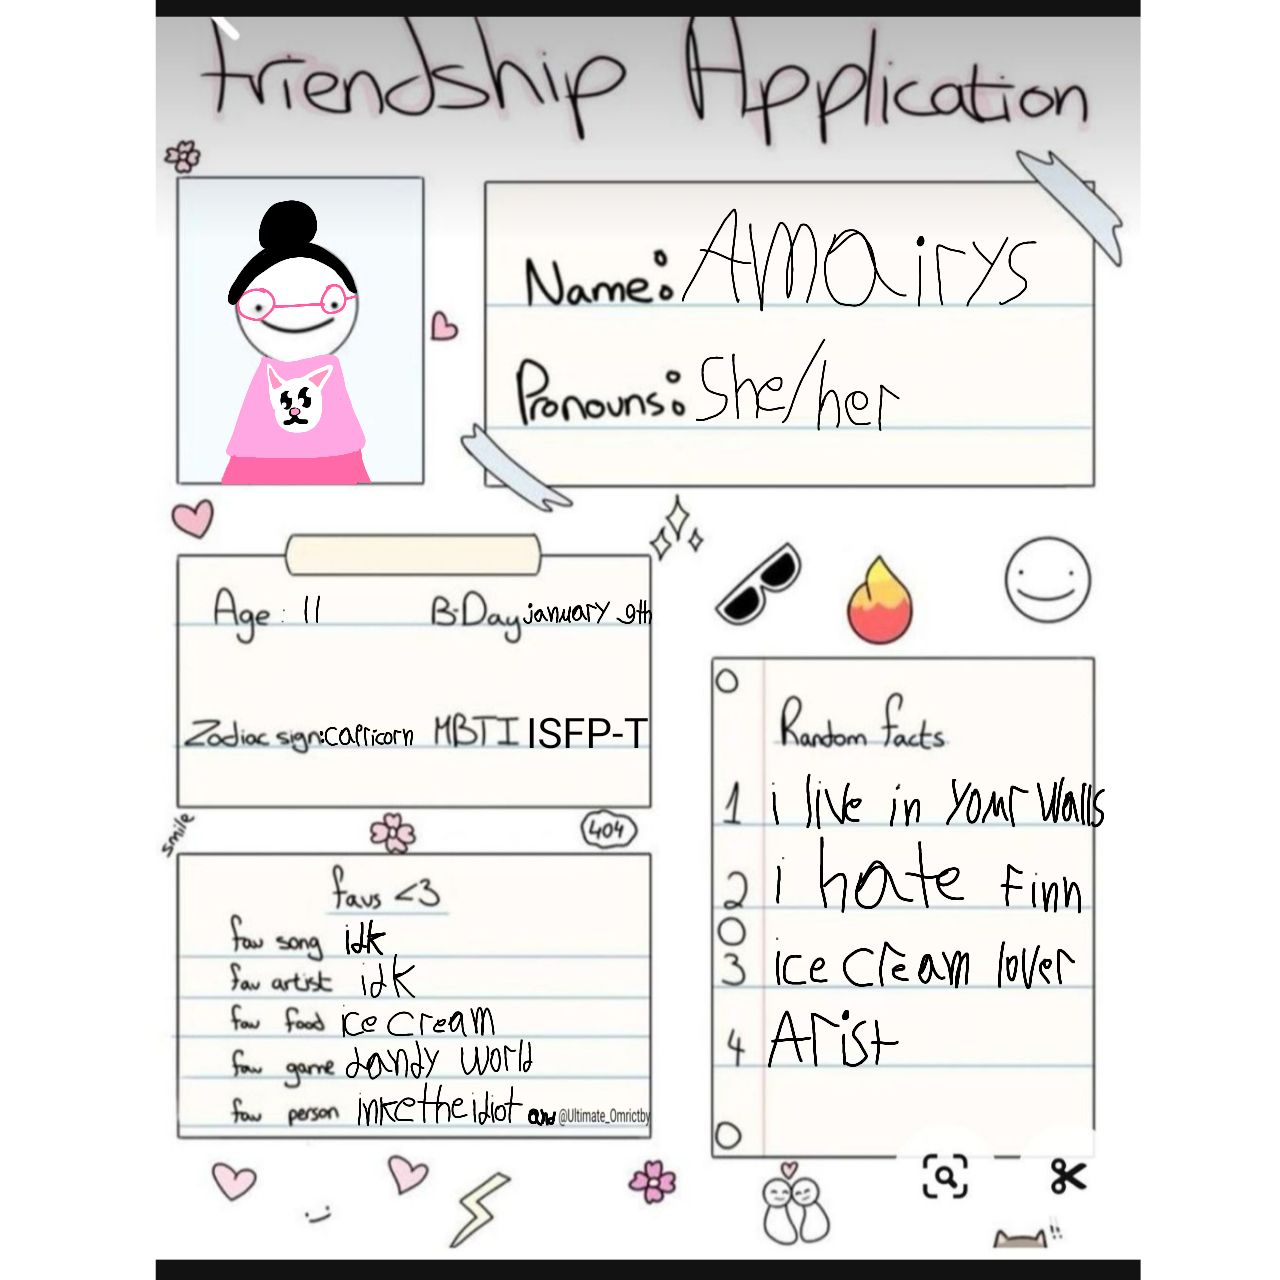 friendship Application
Name: Amairys
Pronouns: She/her
Age: 11
B-Day january 9th
Zodiac sign: capricorn
MBTI ISFP-T
smile
404
favs <3
fav song idk
fav artist idk
fav food ice cream
fav game dandy world
fav person inketheidiot and @Ultimate_Omrictby
Random facts
1 i live in your walls
2 i hate Finn
3 ice cream lover
4 Arist